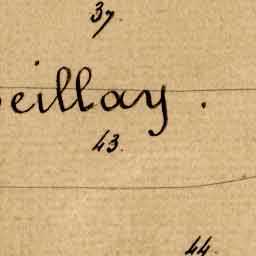 37.
eillay.
43.
44.